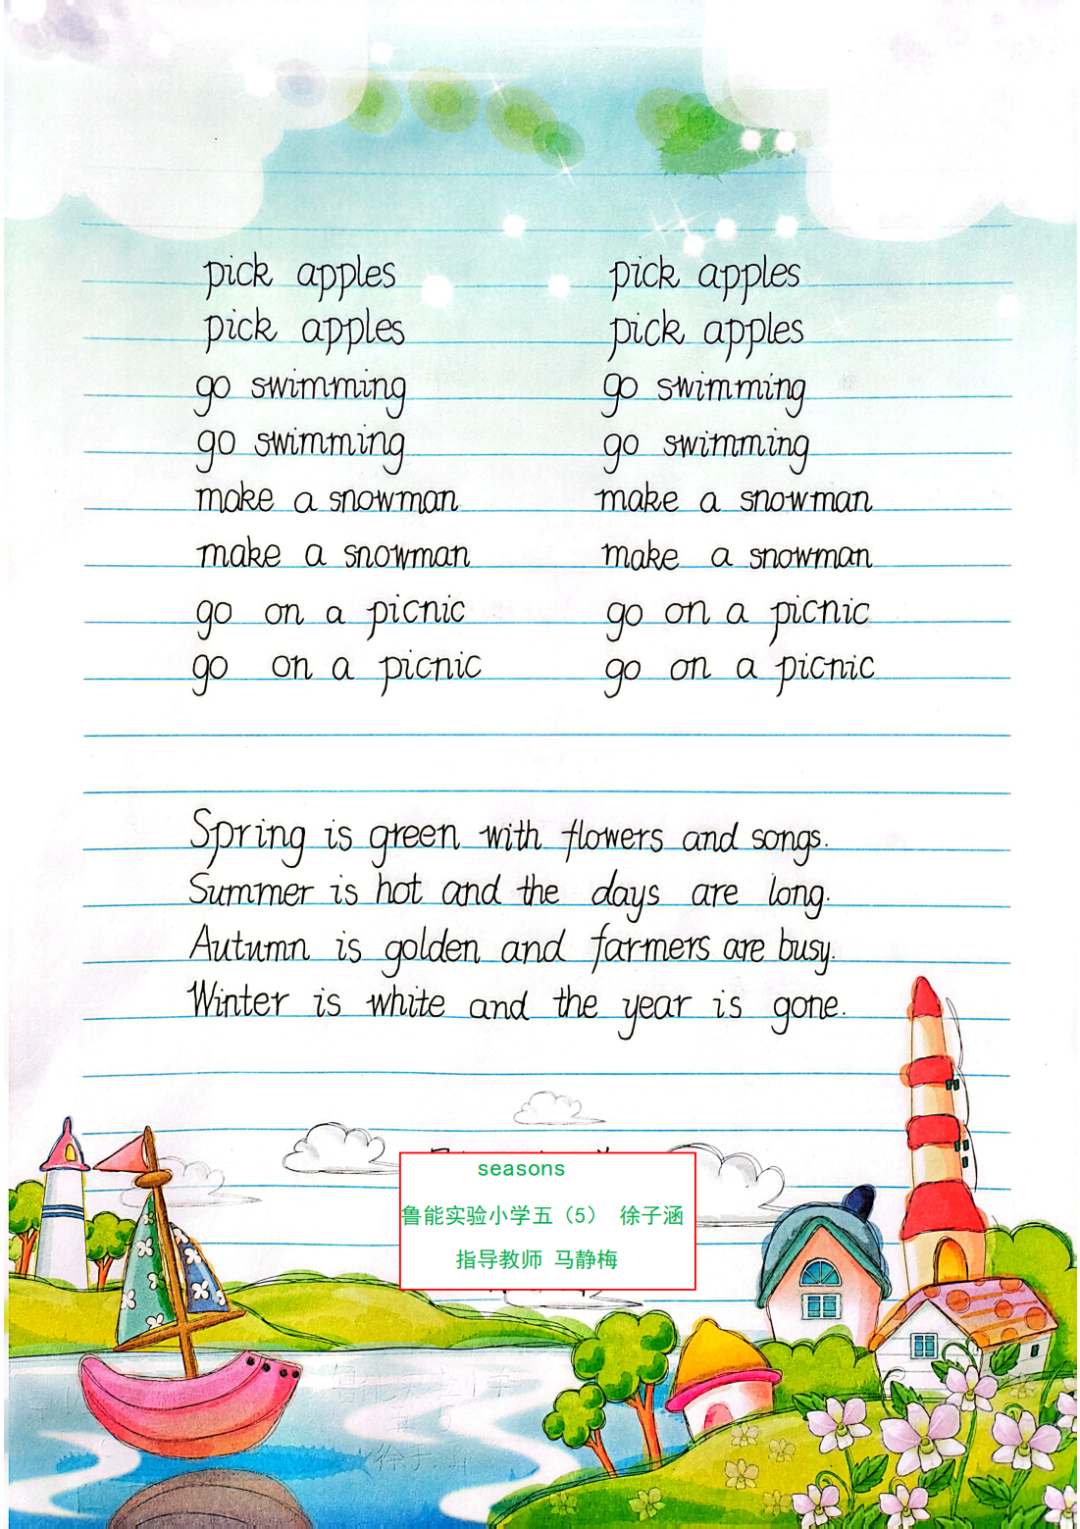 pick apples pick apples
pick apples pick apples
go swimming go swimming
go swimming go swimming
make a snowman make a snowman
make a snowman make a snowman
go on a picnic go on a picnic
go on a picnic go on a picnic
Spring is green with flowers and songs.
Summer is hot and the days are long.
Autumn is golden and farmers are busy.
Winter is white and the year is gone.
seasons
鲁能实验小学五（5） 徐子涵
指导教师 马静梅